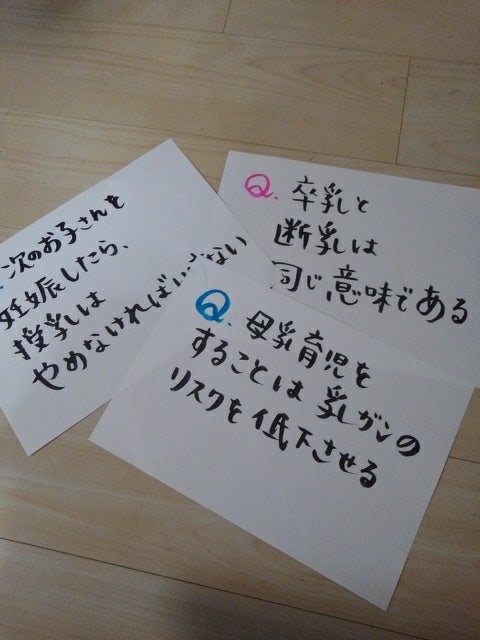 Q. 卒乳と
断乳は
同じ意味である
次のお子さんを
妊娠したら、
授乳は
やめなければいけない
Q. 母乳育児を
することは 乳ガンの
リスクを低下させる